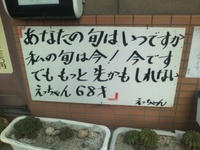 あなたの旬はいつですか
私の旬は今！今です
でももっと先かもしれない
えっちゃん68才
えっちゃん